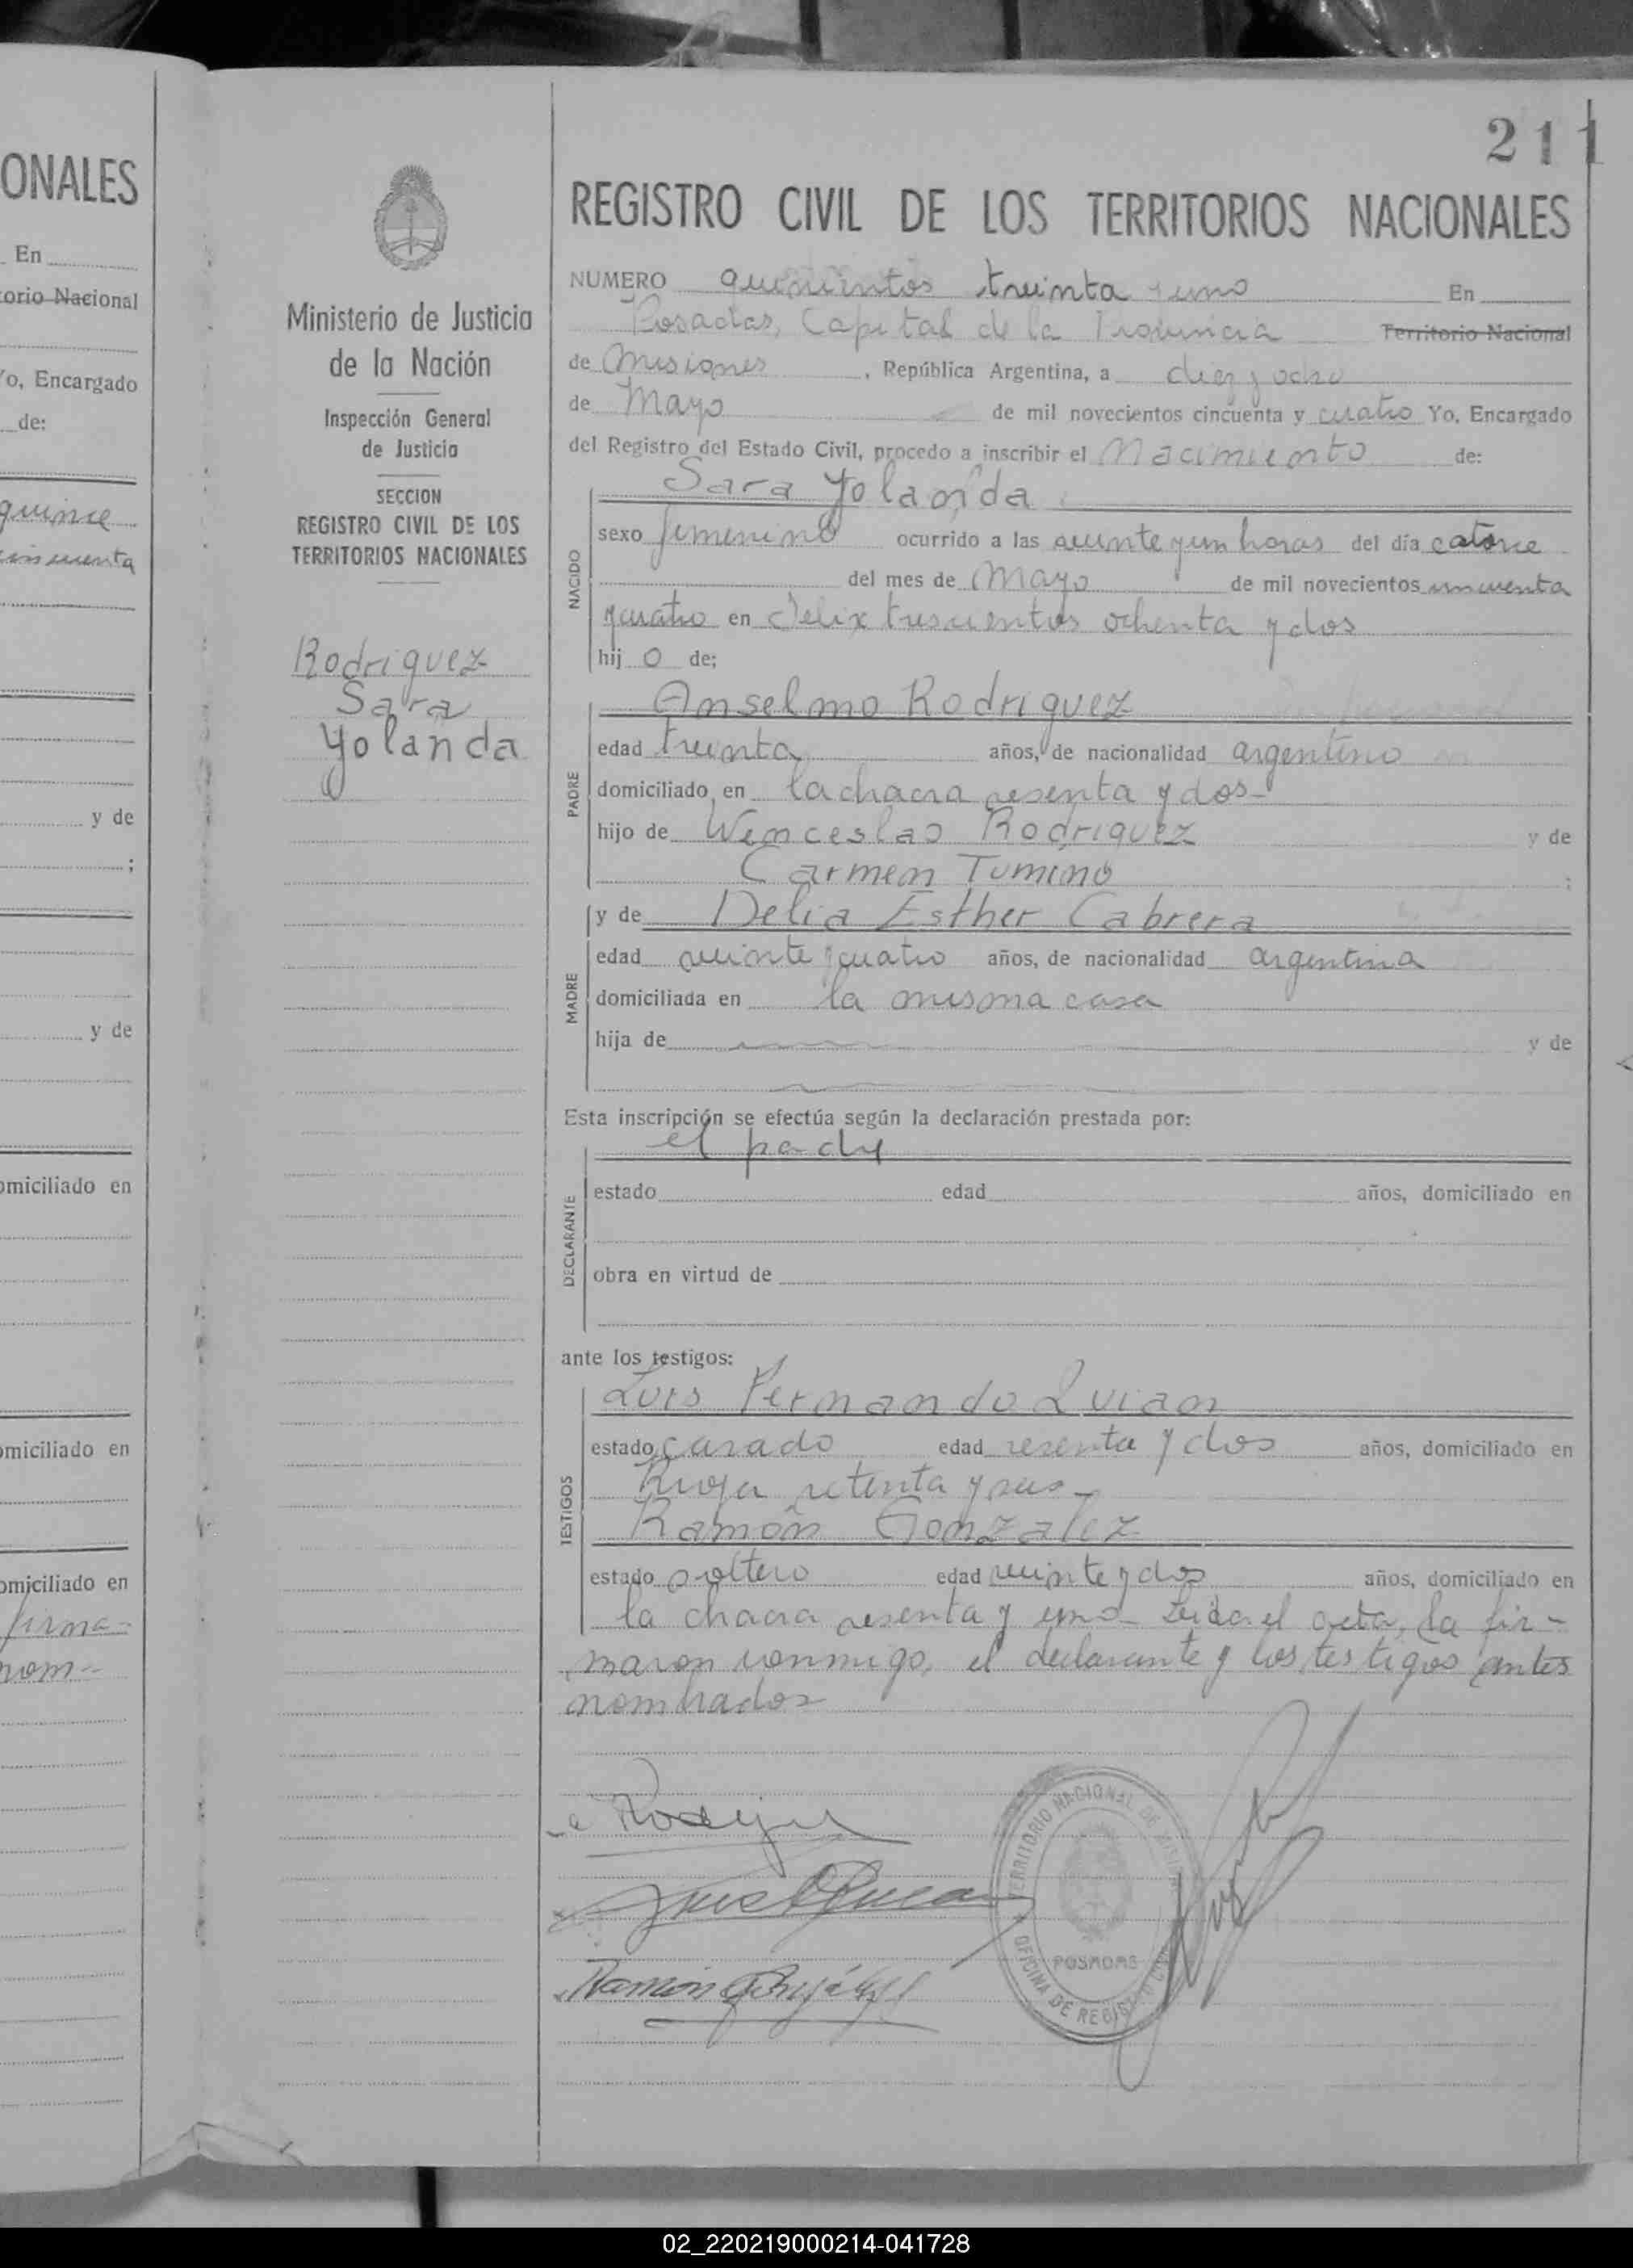 ONALES
En
torio Nacional
Yo, Encargado
de:
quince
cincuenta
y de
;
y de
omiciliado en
omiciliado en
omiciliado en
firma-
nom-
Ministerio de Justicia
de la Nación
Inspección General
de Justicia
SECCION
REGISTRO CIVIL DE LOS
TERRITORIOS NACIONALES
Rodriguez
Sara
Yolanda
211
REGISTRO CIVIL DE LOS TERRITORIOS NACIONALES
NUMERO quinientos treinta y uno En
Posadas, Capital de la Provincia Territorio Nacional
de Misiones, República Argentina, a diez y ocho
de Mayo de mil novecientos cincuenta y cuatro Yo, Encargado
del Registro del Estado Civil, procedo a inscribir el Nacimiento de:
Sara Yolanda
NACIDO
sexo femenino ocurrido a las veinte y un horas del día catorce
del mes de Mayo de mil novecientos cincuenta
y cuatro en Felix trescientos ochenta y dos
hij o de;
Anselmo Rodriguez
PADRE
edad treinta años, de nacionalidad argentino
domiciliado en la chacra sesenta y dos-
hijo de Wenceslao Rodriguez y de
Carmen Tumino ;
y de Delia Esther Cabrera
MADRE
edad veinte y cuatro años, de nacionalidad argentina
domiciliada en la misma casa
hija de y de
Esta inscripción se efectúa según la declaración prestada por:
el padre
DECLARANTE
estado edad años, domiciliado en
obra en virtud de
ante los testigos:
Luis Fernando
TESTIGOS
estado casado edad sesenta y dos años, domiciliado en
Rioja setenta y seis-
Ramón Gonzalez
estado soltero edad veinte y dos años, domiciliado en
la chacra sesenta y uno- Leida el acta, la fir-
maron conmigo, el declarante y los testigos antes
nombrados
Ramón González
TERRITORIO NACIONAL DE MISIONES
POSADAS
OFICINA DE REGISTRO CIVIL
02_220219000214-041728